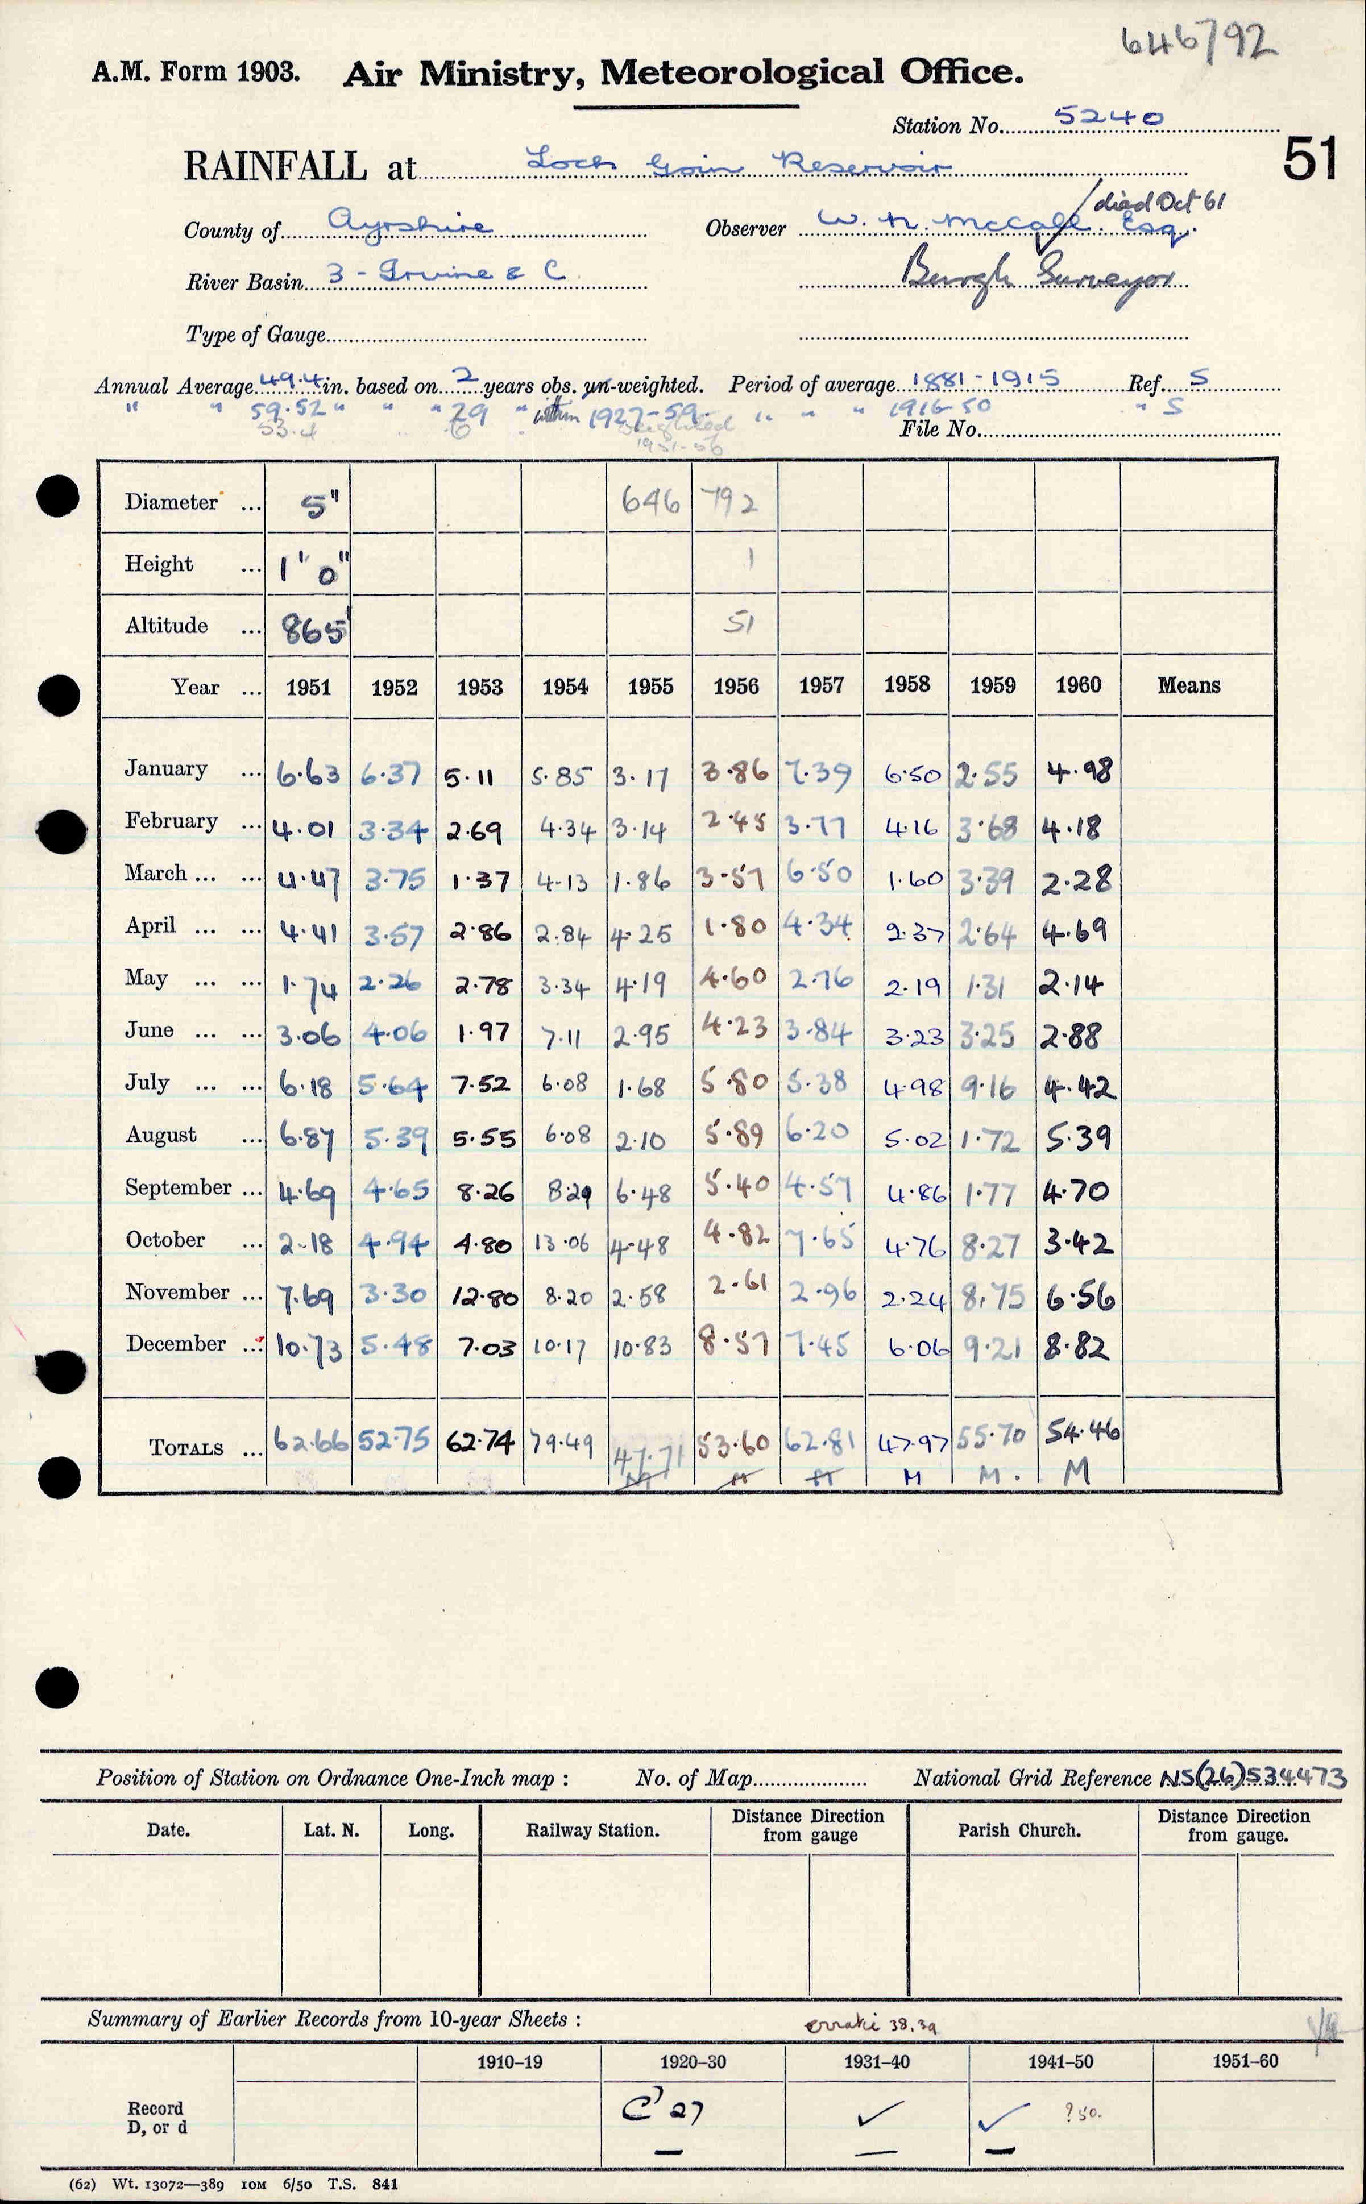 646792
A.M. Form 1903. Air Ministry, Meteorological Office.
Station No. 5240
51
RAINFALL at Loch Goin Reservoir
died Oct 61
County of Ayrshire Observer W. N. McCall. Esq.
River Basin 3 - Irvine & C. Burgh Surveyor
Type of Gauge
Annual Average 49.4 in. based on 2 years obs. un-weighted. Period of average 1881-1915 Ref. S
" " 59.52 " " " 29 " within 1927-59. " " " 1916-50 " S
53.4 6 weighted File No.
1951-56
Diameter ... 5" 646 792
Height ... 1' 0" 1
Altitude ... 865' 51
Year ... 1951 1952 1953 1954 1955 1956 1957 1958 1959 1960 Means
January ... 6.63 6.37 5.11 5.85 3.17 3.86 7.39 6.50 2.55 4.98
February ... 4.01 3.34 2.69 4.34 3.14 2.45 3.77 4.16 3.68 4.18
March ... ... 4.47 3.75 1.37 4.13 1.86 3.57 6.50 1.60 3.39 2.28
April ... ... 4.41 3.57 2.86 2.84 4.25 1.80 4.34 2.37 2.64 4.69
May ... ... 1.74 2.26 2.78 3.34 4.19 4.60 2.76 2.19 1.31 2.14
June ... ... 3.06 4.06 1.97 7.11 2.95 4.23 3.84 3.23 3.25 2.88
July ... ... 6.18 5.64 7.52 6.08 1.68 5.80 5.38 4.98 9.16 4.42
August ... 6.87 5.39 5.55 6.08 2.10 5.89 6.20 5.02 1.72 5.39
September ... 4.69 4.65 8.26 8.29 6.48 5.40 4.57 4.86 1.77 4.70
October ... 2.18 4.94 4.80 13.06 4.48 4.82 7.65 4.76 8.27 3.42
November ... 7.69 3.30 12.80 8.20 2.58 2.61 2.96 2.24 8.75 6.56
December ... 10.73 5.48 7.03 10.17 10.83 8.57 7.45 6.06 9.21 8.82
TOTALS ... 62.66 52.75 62.74 79.49 47.71 53.60 62.81 47.97 55.70 54.46
M M M M M. M
Position of Station on Ordnance One-Inch map : No. of Map National Grid Reference NS(26)534473
Date. Lat. N. Long. Railway Station. Distance Direction from gauge Parish Church. Distance Direction from gauge.
Summary of Earlier Records from 10-year Sheets : 38.39
1910-19 1920-30 1931-40 1941-50 1951-60
Record D, or d C' 27 ✓ ✓ ?50.
(62) Wt. 13072—389 10M 6/50 T.S. 841